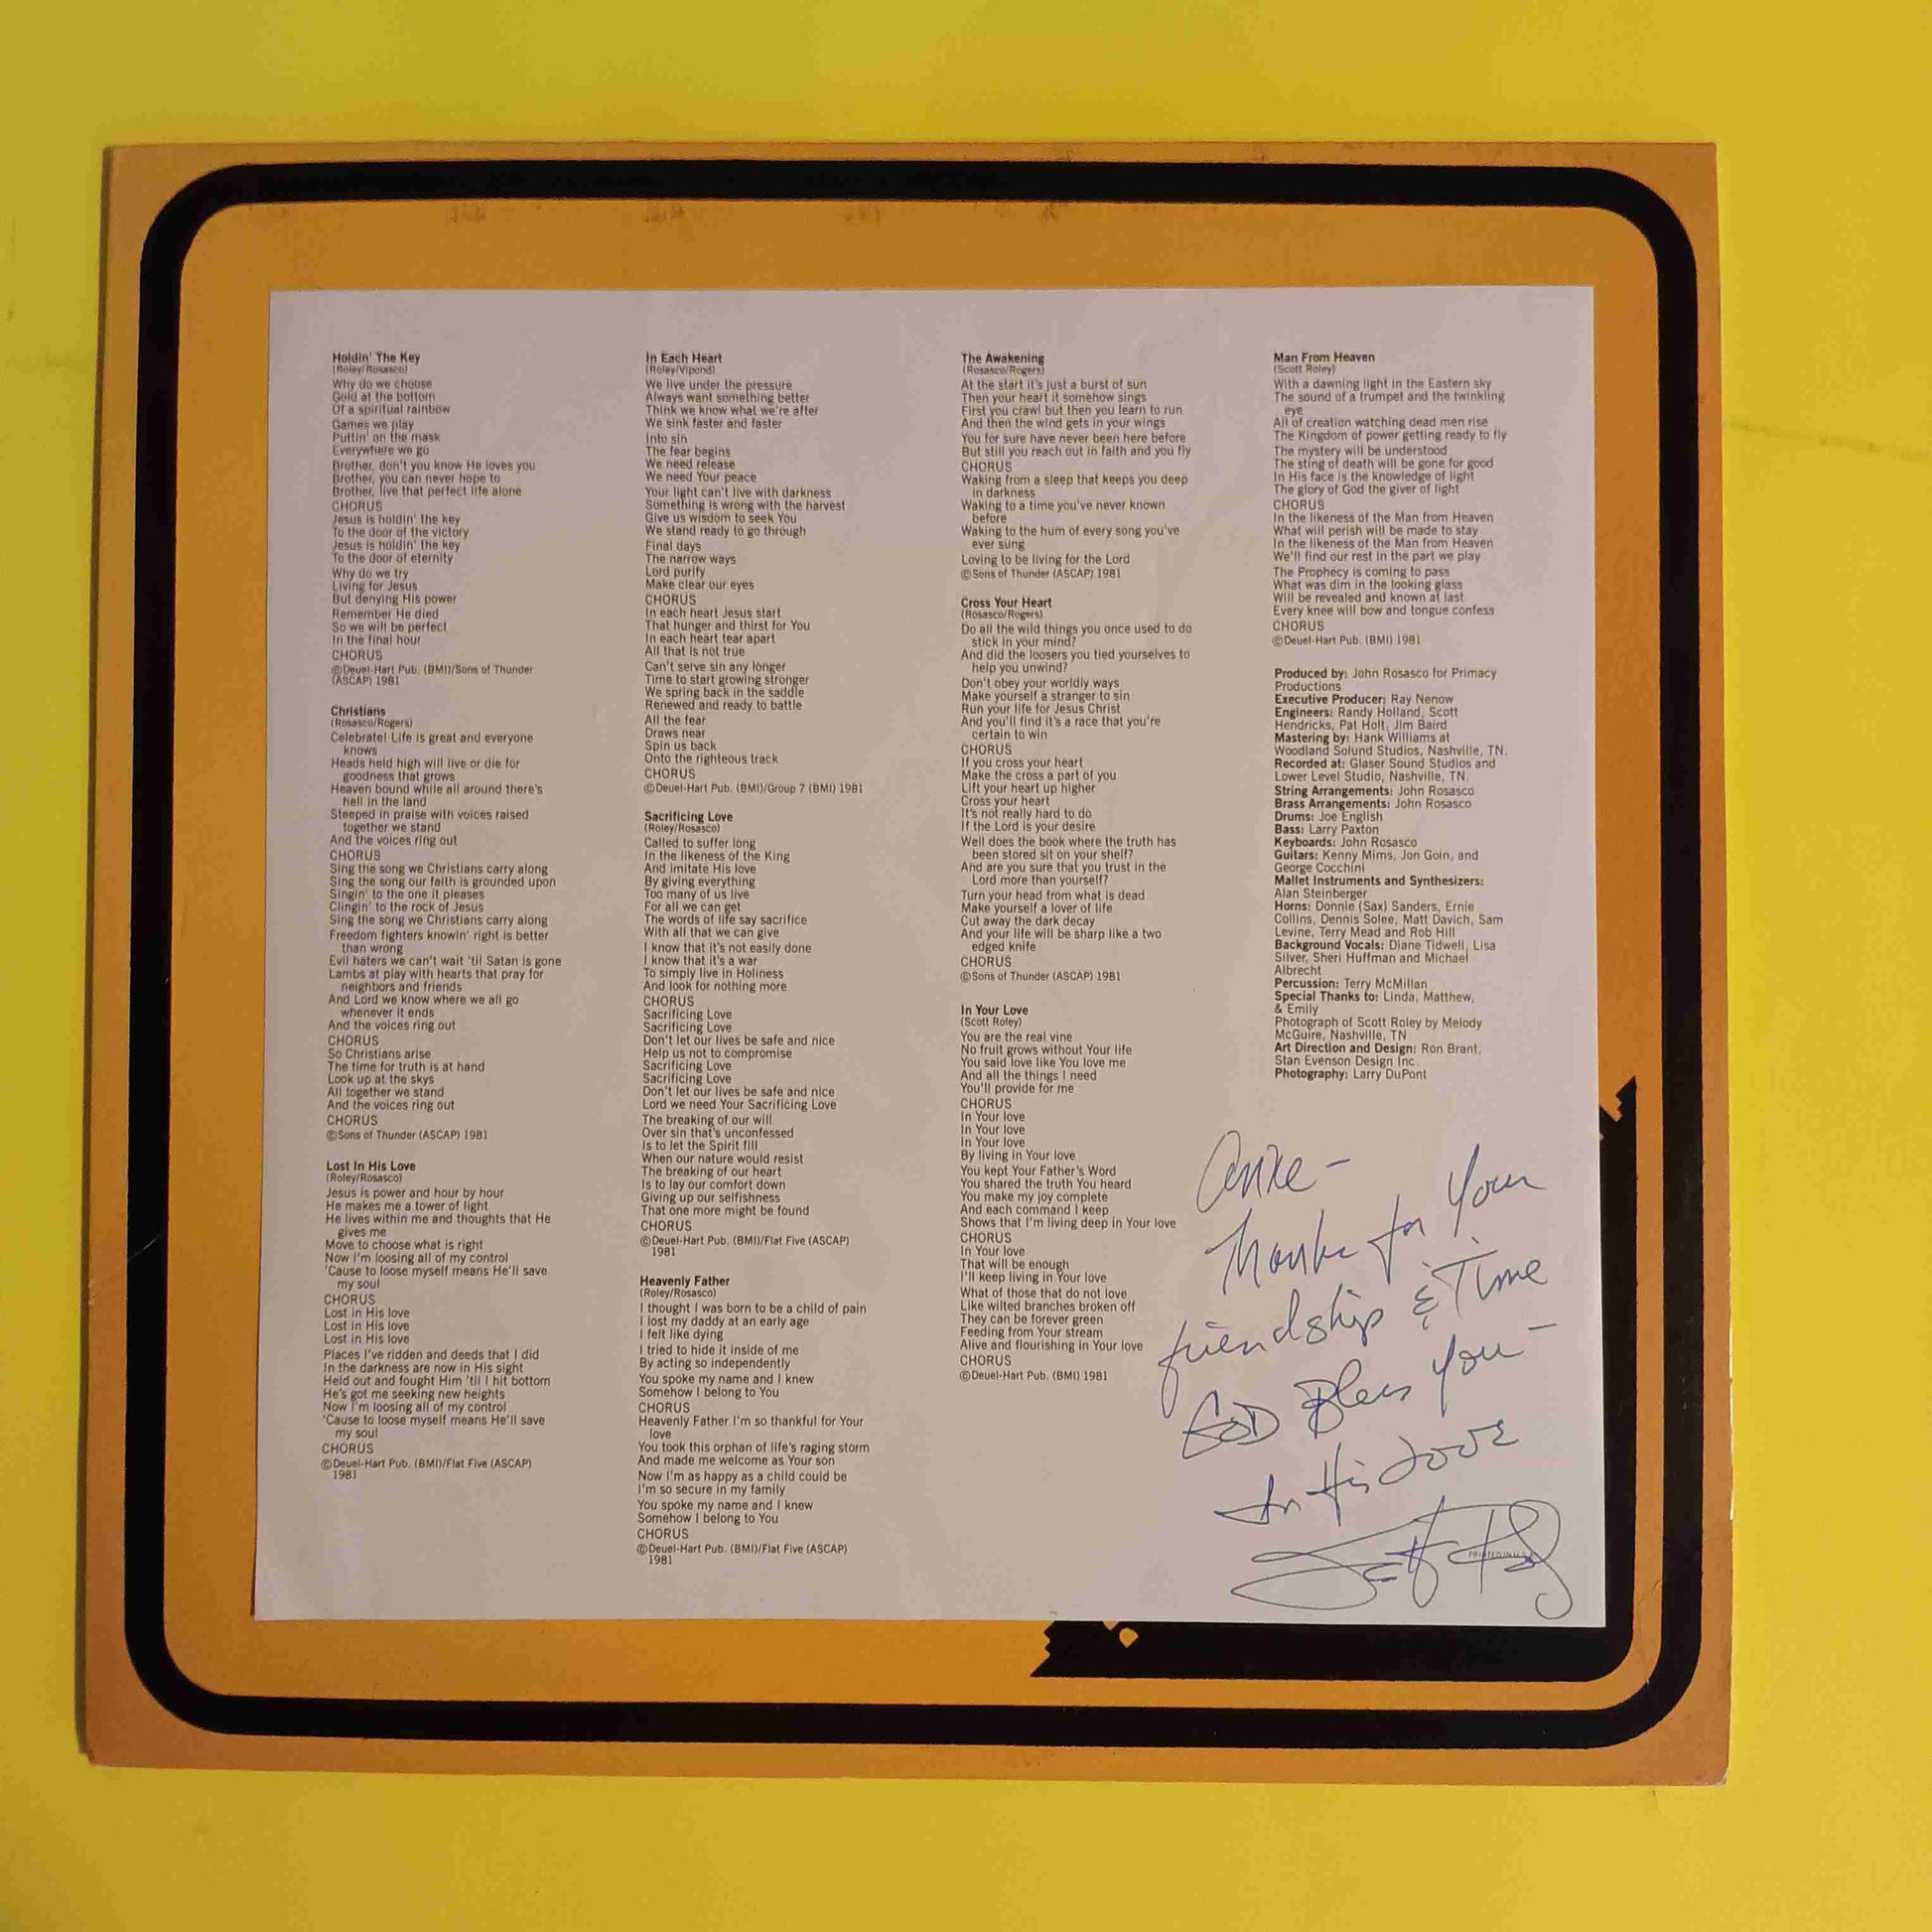 Holdin' The Key
(Roley/Rosasco)
Why do we choose
Gold at the bottom
Of a spiritual rainbow
Games we play
Puttin' on the mask
Everywhere we go
Brother, don't you know He loves you
Brother, you can never hope to
Brother, live that perfect life alone
CHORUS
Jesus is holdin' the key
To the door of the victory
Jesus is holdin' the key
To the door of eternity
Why do we try
Living for Jesus
But denying His power
Remember He died
So we will be perfect
In the final hour
CHORUS
©Deuel-Hart Pub. (BMI)/Sons of Thunder
(ASCAP) 1981
Christians
(Rosasco/Rogers)
Celebrate! Life is great and everyone
knows
Heads held high will live or die for
goodness that grows
Heaven bound while all around there's
hell in the land
Steeped in praise with voices raised
together we stand
And the voices ring out
CHORUS
Sing the song we Christians carry along
Sing the song our faith is grounded upon
Singin' to the one it pleases
Clingin' to the rock of Jesus
Sing the song we Christians carry along
Freedom fighters knowin' right is better
than wrong
Evil haters we can't wait 'til Satan is gone
Lambs at play with hearts that pray for
neighbors and friends
And Lord we know where we all go
whenever it ends
And the voices ring out
CHORUS
So Christians arise
The time for truth is at hand
Look up at the skys
All together we stand
And the voices ring out
CHORUS
©Sons of Thunder (ASCAP) 1981
Lost In His Love
(Roley/Rosasco)
Jesus is power and hour by hour
He makes me a tower of light
He lives within me and thoughts that He
gives me
Move to choose what is right
Now I'm loosing all of my control
'Cause to loose myself means He'll save
my soul
CHORUS
Lost in His love
Lost in His love
Lost in His love
Places I've ridden and deeds that I did
In the darkness are now in His sight
Held out and fought Him 'til I hit bottom
He's got me seeking new heights
Now I'm loosing all of my control
'Cause to loose myself means He'll save
my soul
CHORUS
©Deuel-Hart Pub. (BMI)/Flat Five (ASCAP)
1981
In Each Heart
(Roley/Vipond)
We live under the pressure
Always want something better
Think we know what we're after
We sink faster and faster
Into sin
The fear begins
We need release
We need Your peace
Your light can't live with darkness
Something is wrong with the harvest
Give us wisdom to seek You
We stand ready to go through
Final days
The narrow ways
Lord purify
Make clear our eyes
CHORUS
In each heart Jesus start
That hunger and thirst for You
In each heart tear apart
All that is not true
Can't serve sin any longer
Time to start growing stronger
We spring back in the saddle
Renewed and ready to battle
All the fear
Draws near
Spin us back
Onto the righteous track
CHORUS
©Deuel-Hart Pub. (BMI)/Group 7 (BMI) 1981
Sacrificing Love
(Roley/Rosasco)
Called to suffer long
In the likeness of the King
And imitate His love
By giving everything
Too many of us live
For all we can get
The words of life say sacrifice
With all that we can give
I know that it's not easily done
I know that it's a war
To simply live in Holiness
And look for nothing more
CHORUS
Sacrificing Love
Sacrificing Love
Don't let our lives be safe and nice
Help us not to compromise
Sacrificing Love
Sacrificing Love
Don't let our lives be safe and nice
Lord we need Your Sacrificing Love
The breaking of our will
Over sin that's unconfessed
Is to let the Spirit fill
When our nature would resist
The breaking of our heart
Is to lay our comfort down
Giving up our selfishness
That one more might be found
CHORUS
©Deuel-Hart Pub. (BMI)/Flat Five (ASCAP)
1981
Heavenly Father
(Roley/Rosasco)
I thought I was born to be a child of pain
I lost my daddy at an early age
I felt like dying
I tried to hide it inside of me
By acting so independently
You spoke my name and I knew
Somehow I belong to You
CHORUS
Heavenly Father I'm so thankful for Your
love
You took this orphan of life's raging storm
And made me welcome as Your son
Now I'm as happy as a child could be
I'm so secure in my family
You spoke my name and I knew
Somehow I belong to You
CHORUS
©Deuel-Hart Pub. (BMI)/Flat Five (ASCAP)
1981
The Awakening
(Rosasco/Rogers)
At the start it's just a burst of sun
Then your heart it somehow sings
First you crawl but then you learn to run
And then the wind gets in your wings
You for sure have never been here before
But still you reach out in faith and you fly
CHORUS
Waking from a sleep that keeps you deep
in darkness
Waking to a time you've never known
before
Waking to the hum of every song you've
ever sung
Loving to be living for the Lord
©Sons of Thunder (ASCAP) 1981
Cross Your Heart
(Rosasco/Rogers)
Do all the wild things you once used to do
stick in your mind?
And did the loosers you tied yourselves to
help you unwind?
Don't obey your worldly ways
Make yourself a stranger to sin
Run your life for Jesus Christ
And you'll find it's a race that you're
certain to win
CHORUS
If you cross your heart
Make the cross a part of you
Lift your heart up higher
Cross your heart
It's not really hard to do
If the Lord is your desire
Well does the book where the truth has
been stored sit on your shelf?
And are you sure that you trust in the
Lord more than yourself?
Turn your head from what is dead
Make yourself a lover of life
Cut away the dark decay
And your life will be sharp like a two
edged knife
CHORUS
©Sons of Thunder (ASCAP) 1981
In Your Love
(Scott Roley)
You are the real vine
No fruit grows without Your life
You said love like You love me
And all the things I need
You'll provide for me
CHORUS
In Your love
In Your love
In Your love
By living in Your love
You kept Your Father's Word
You shared the truth You heard
You make my joy complete
And each command I keep
Shows that I'm living deep in Your love
CHORUS
In Your love
That will be enough
I'll keep living in Your love
What of those that do not love
Like wilted branches broken off
They can be forever green
Feeding from Your stream
Alive and flourishing in Your love
CHORUS
©Deuel-Hart Pub. (BMI) 1981
Man From Heaven
(Scott Roley)
With a dawning light in the Eastern sky
The sound of a trumpet and the twinkling
eye
All of creation watching dead men rise
The Kingdom of power getting ready to fly
The mystery will be understood
The sting of death will be gone for good
In His face is the knowledge of light
The glory of God the giver of light
CHORUS
In the likeness of the Man from Heaven
What will perish will be made to stay
In the likeness of the Man from Heaven
We'll find our rest in the part we play
The Prophecy is coming to pass
What was dim in the looking glass
Will be revealed and known at last
Every knee will bow and tongue confess
CHORUS
©Deuel-Hart Pub. (BMI) 1981
Produced by: John Rosasco for Primacy
Productions
Executive Producer: Ray Nenow
Engineers: Randy Holland, Scott
Hendricks, Pat Holt, Jim Baird
Mastering by: Hank Williams at
Woodland Solund Studios, Nashville, TN.
Recorded at: Glaser Sound Studios and
Lower Level Studio, Nashville, TN
String Arrangements: John Rosasco
Brass Arrangements: John Rosasco
Drums: Joe English
Bass: Larry Paxton
Keyboards: John Rosasco
Guitars: Kenny Mims, Jon Goin, and
George Cocchini
Mallet Instruments and Synthesizers:
Alan Steinberger
Horns: Donnie (Sax) Sanders, Ernie
Collins, Dennis Solee, Matt Davich, Sam
Levine, Terry Mead and Rob Hill
Background Vocals: Diane Tidwell, Lisa
Silver, Sheri Huffman and Michael
Albrecht
Percussion: Terry McMillan
Special Thanks to: Linda, Matthew,
& Emily
Photograph of Scott Roley by Melody
McGuire, Nashville, TN
Art Direction and Design: Ron Brant,
Stan Evenson Design Inc.
Photography: Larry DuPont
Thanks for Your
friendship & Time
GOD Bless You-
In His Love